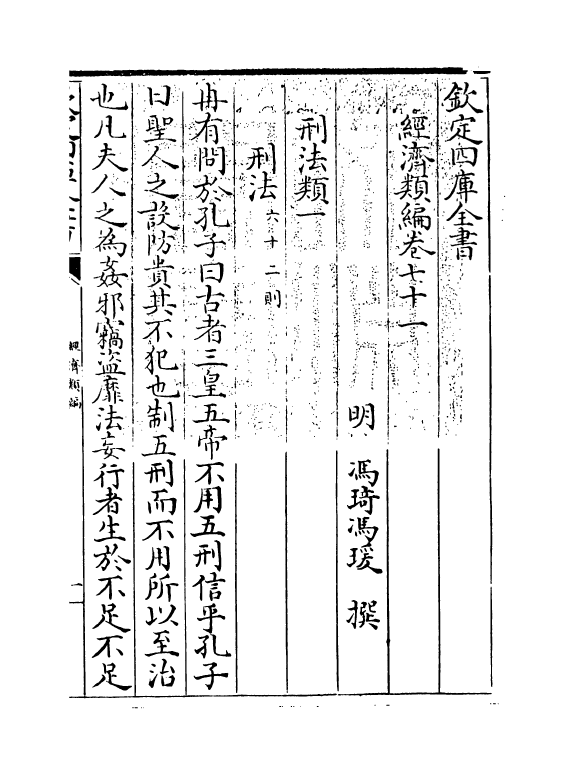 欽定四庫全書
經濟類編卷七十一
明 馮琦馮瑗 撰
刑法類一
刑法六十二則
冉有問於孔子曰古者三皇五帝不用五刑信乎孔子
曰聖人之設防貴其不犯也制五刑而不用所以至治
也凡夫人之為姦邪竊盗靡法妄行者生於不足不足
經濟類編